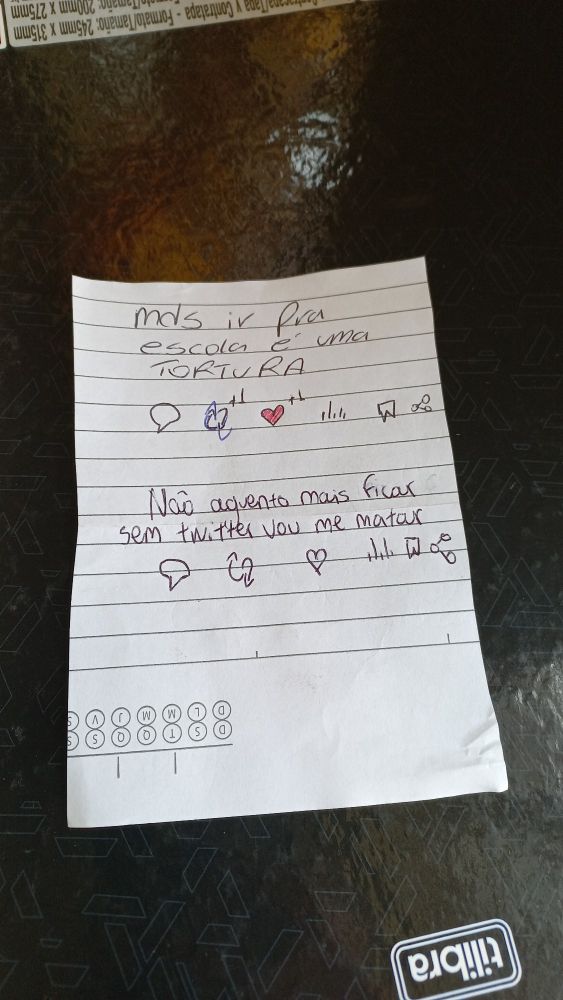 Contracapa/Tapa y Contratapa - Formato/Tamaño: 200mm x 275mm
245mm x 315mm
mds ir pra
escola é uma
TORTURA
+1 +1
Não aguento mais ficar
sem twitter vou me matar
D L M M J V S
D S T Q Q S S
tilibra